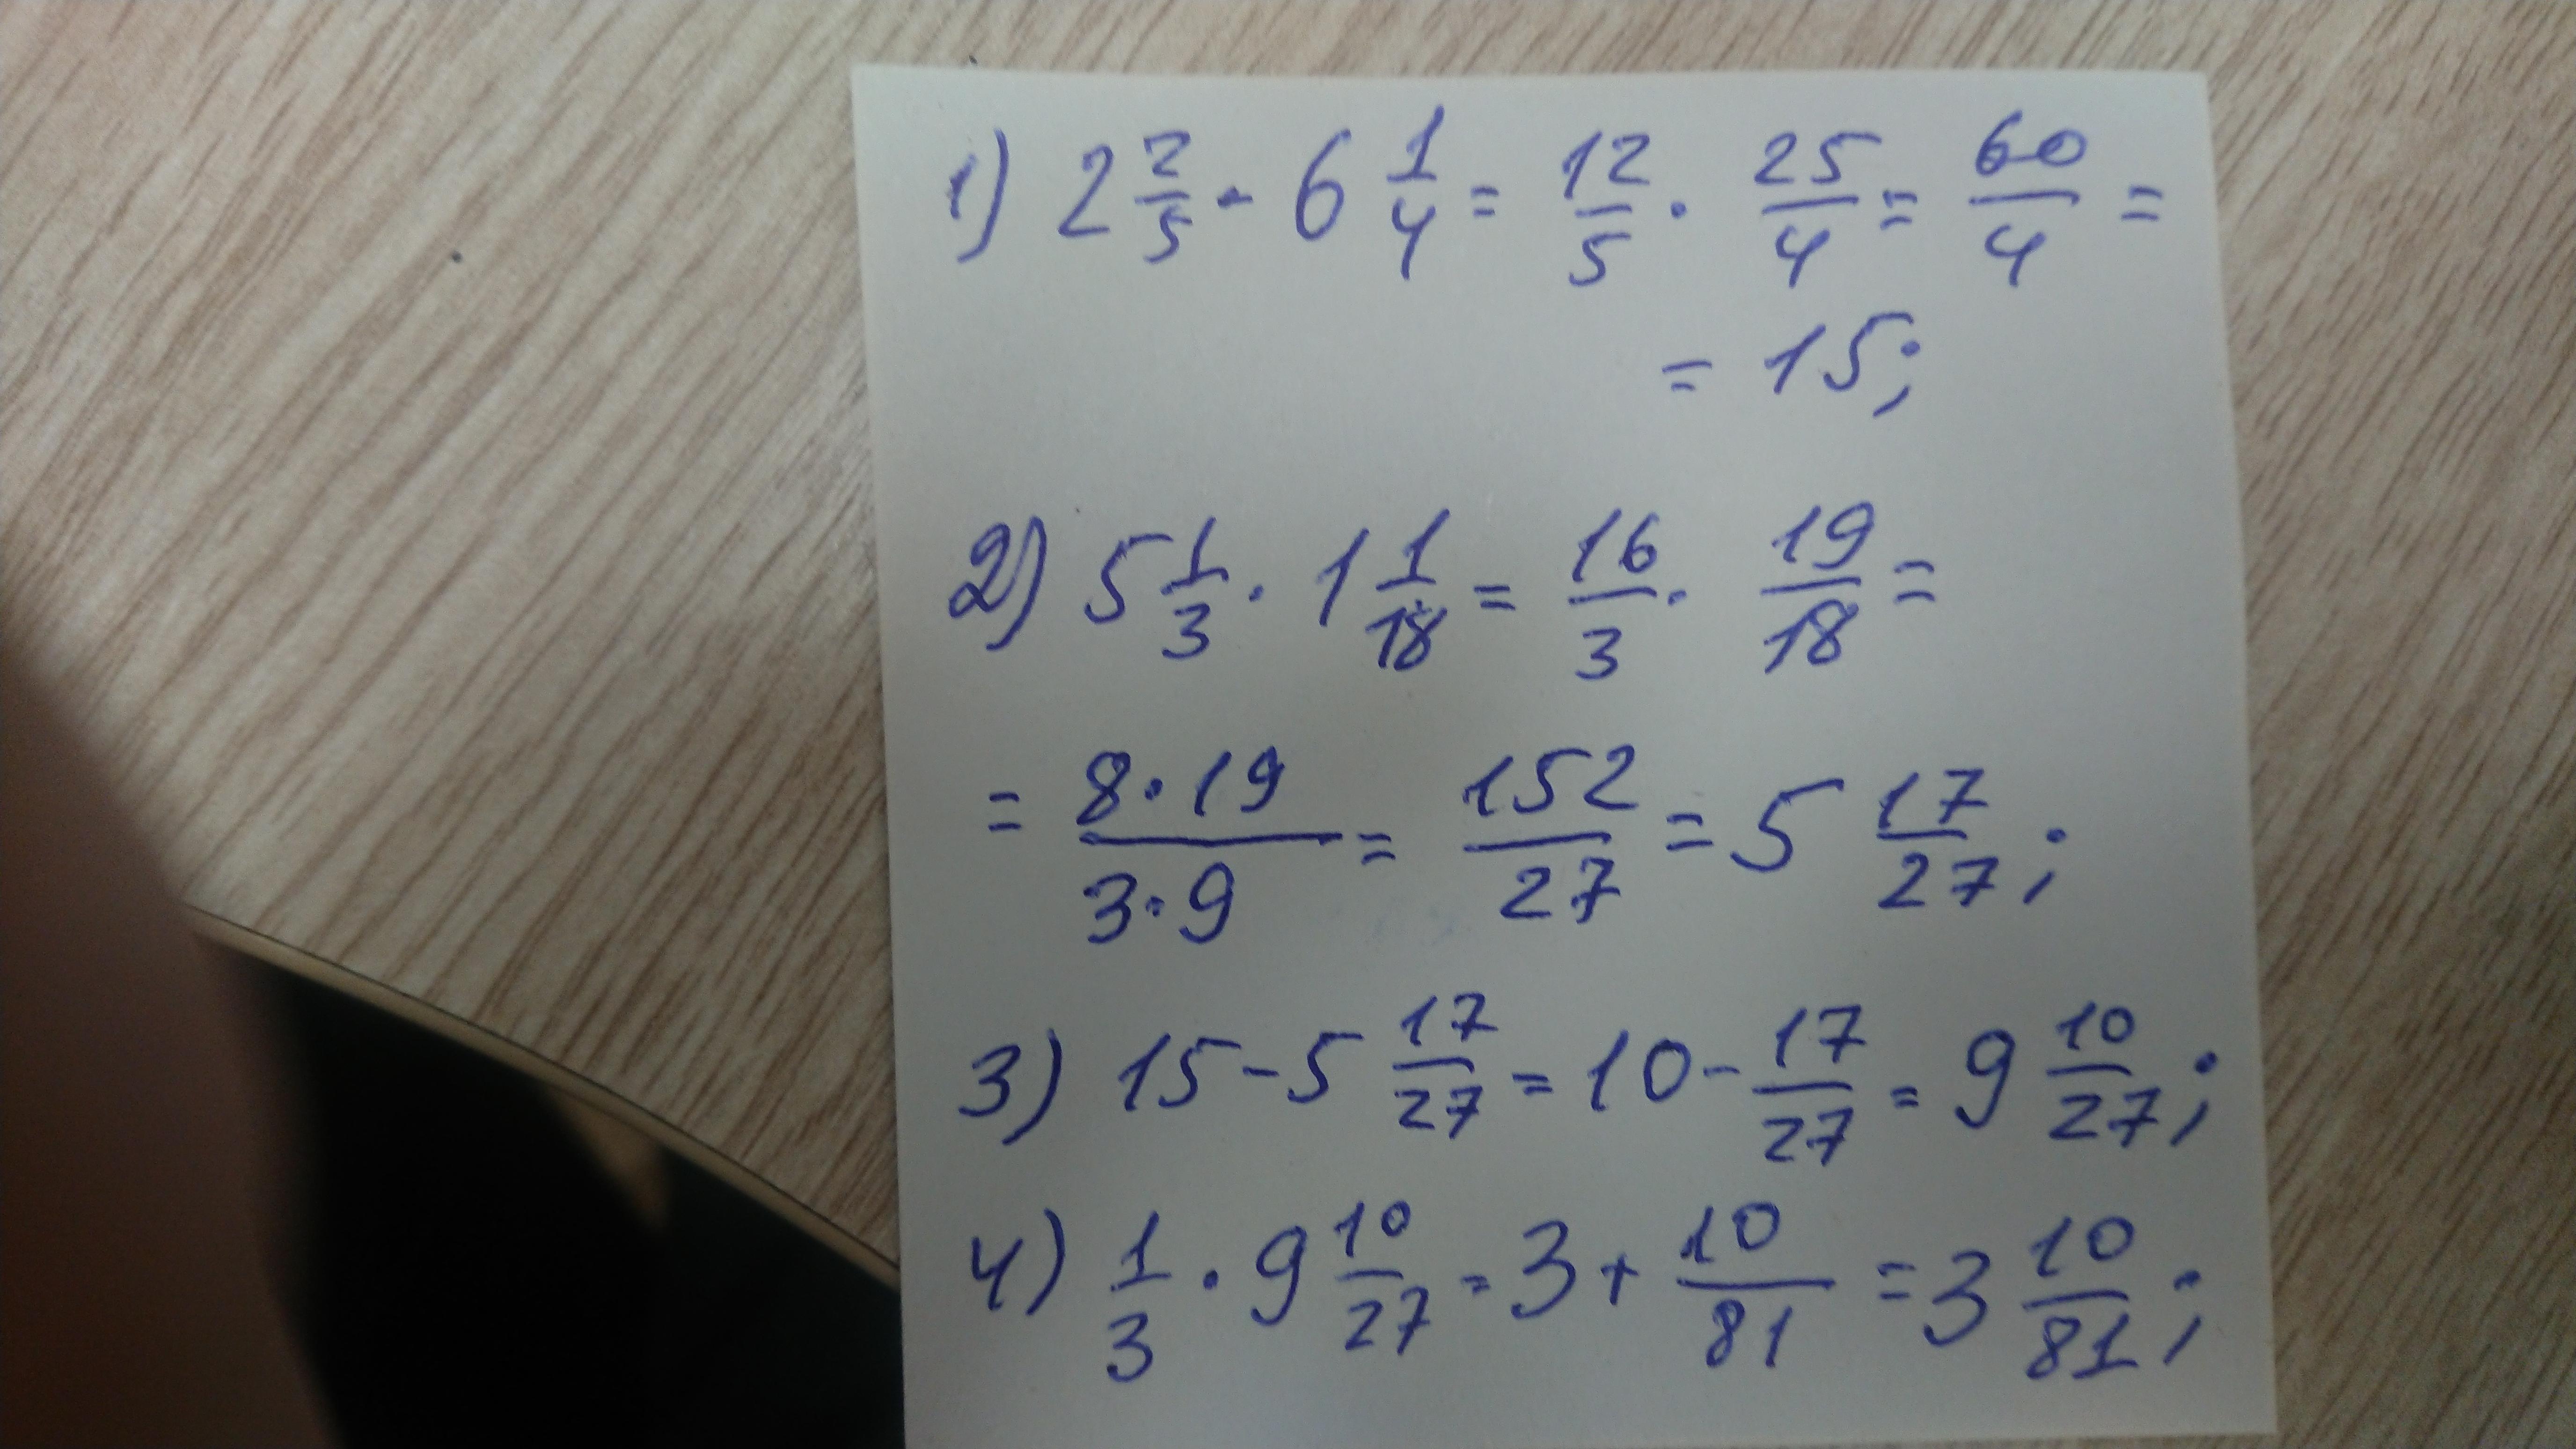 1) 2 2/5 · 6 1/4 = 12/5 · 25/4 = 60/4 =
= 15;
2) 5 1/3 · 1 1/18 = 16/3 · 19/18 =
= 8·19/3·9 = 152/27 = 5 17/27;
3) 15 - 5 17/27 = 10 - 17/27 = 9 10/27;
4) 1/3 · 9 10/27 = 3 + 10/81 = 3 10/81;